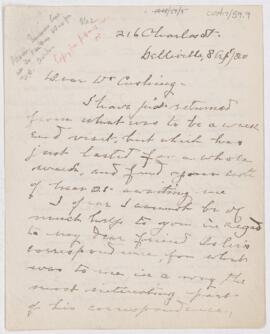 216 Charles St.
Belleville, 8 Apl/20
Dear Dr Cushing:
I have just returned
from what was to be a week
end visit, but which has
just lasted for a whole
week, and find your note
of Mar 25 awaiting me
I fear I cannot be of
much help to you in regard
to my dear friend Osler's
correspondence, for what
was to me in a way the
most interesting part
of his correspondence,